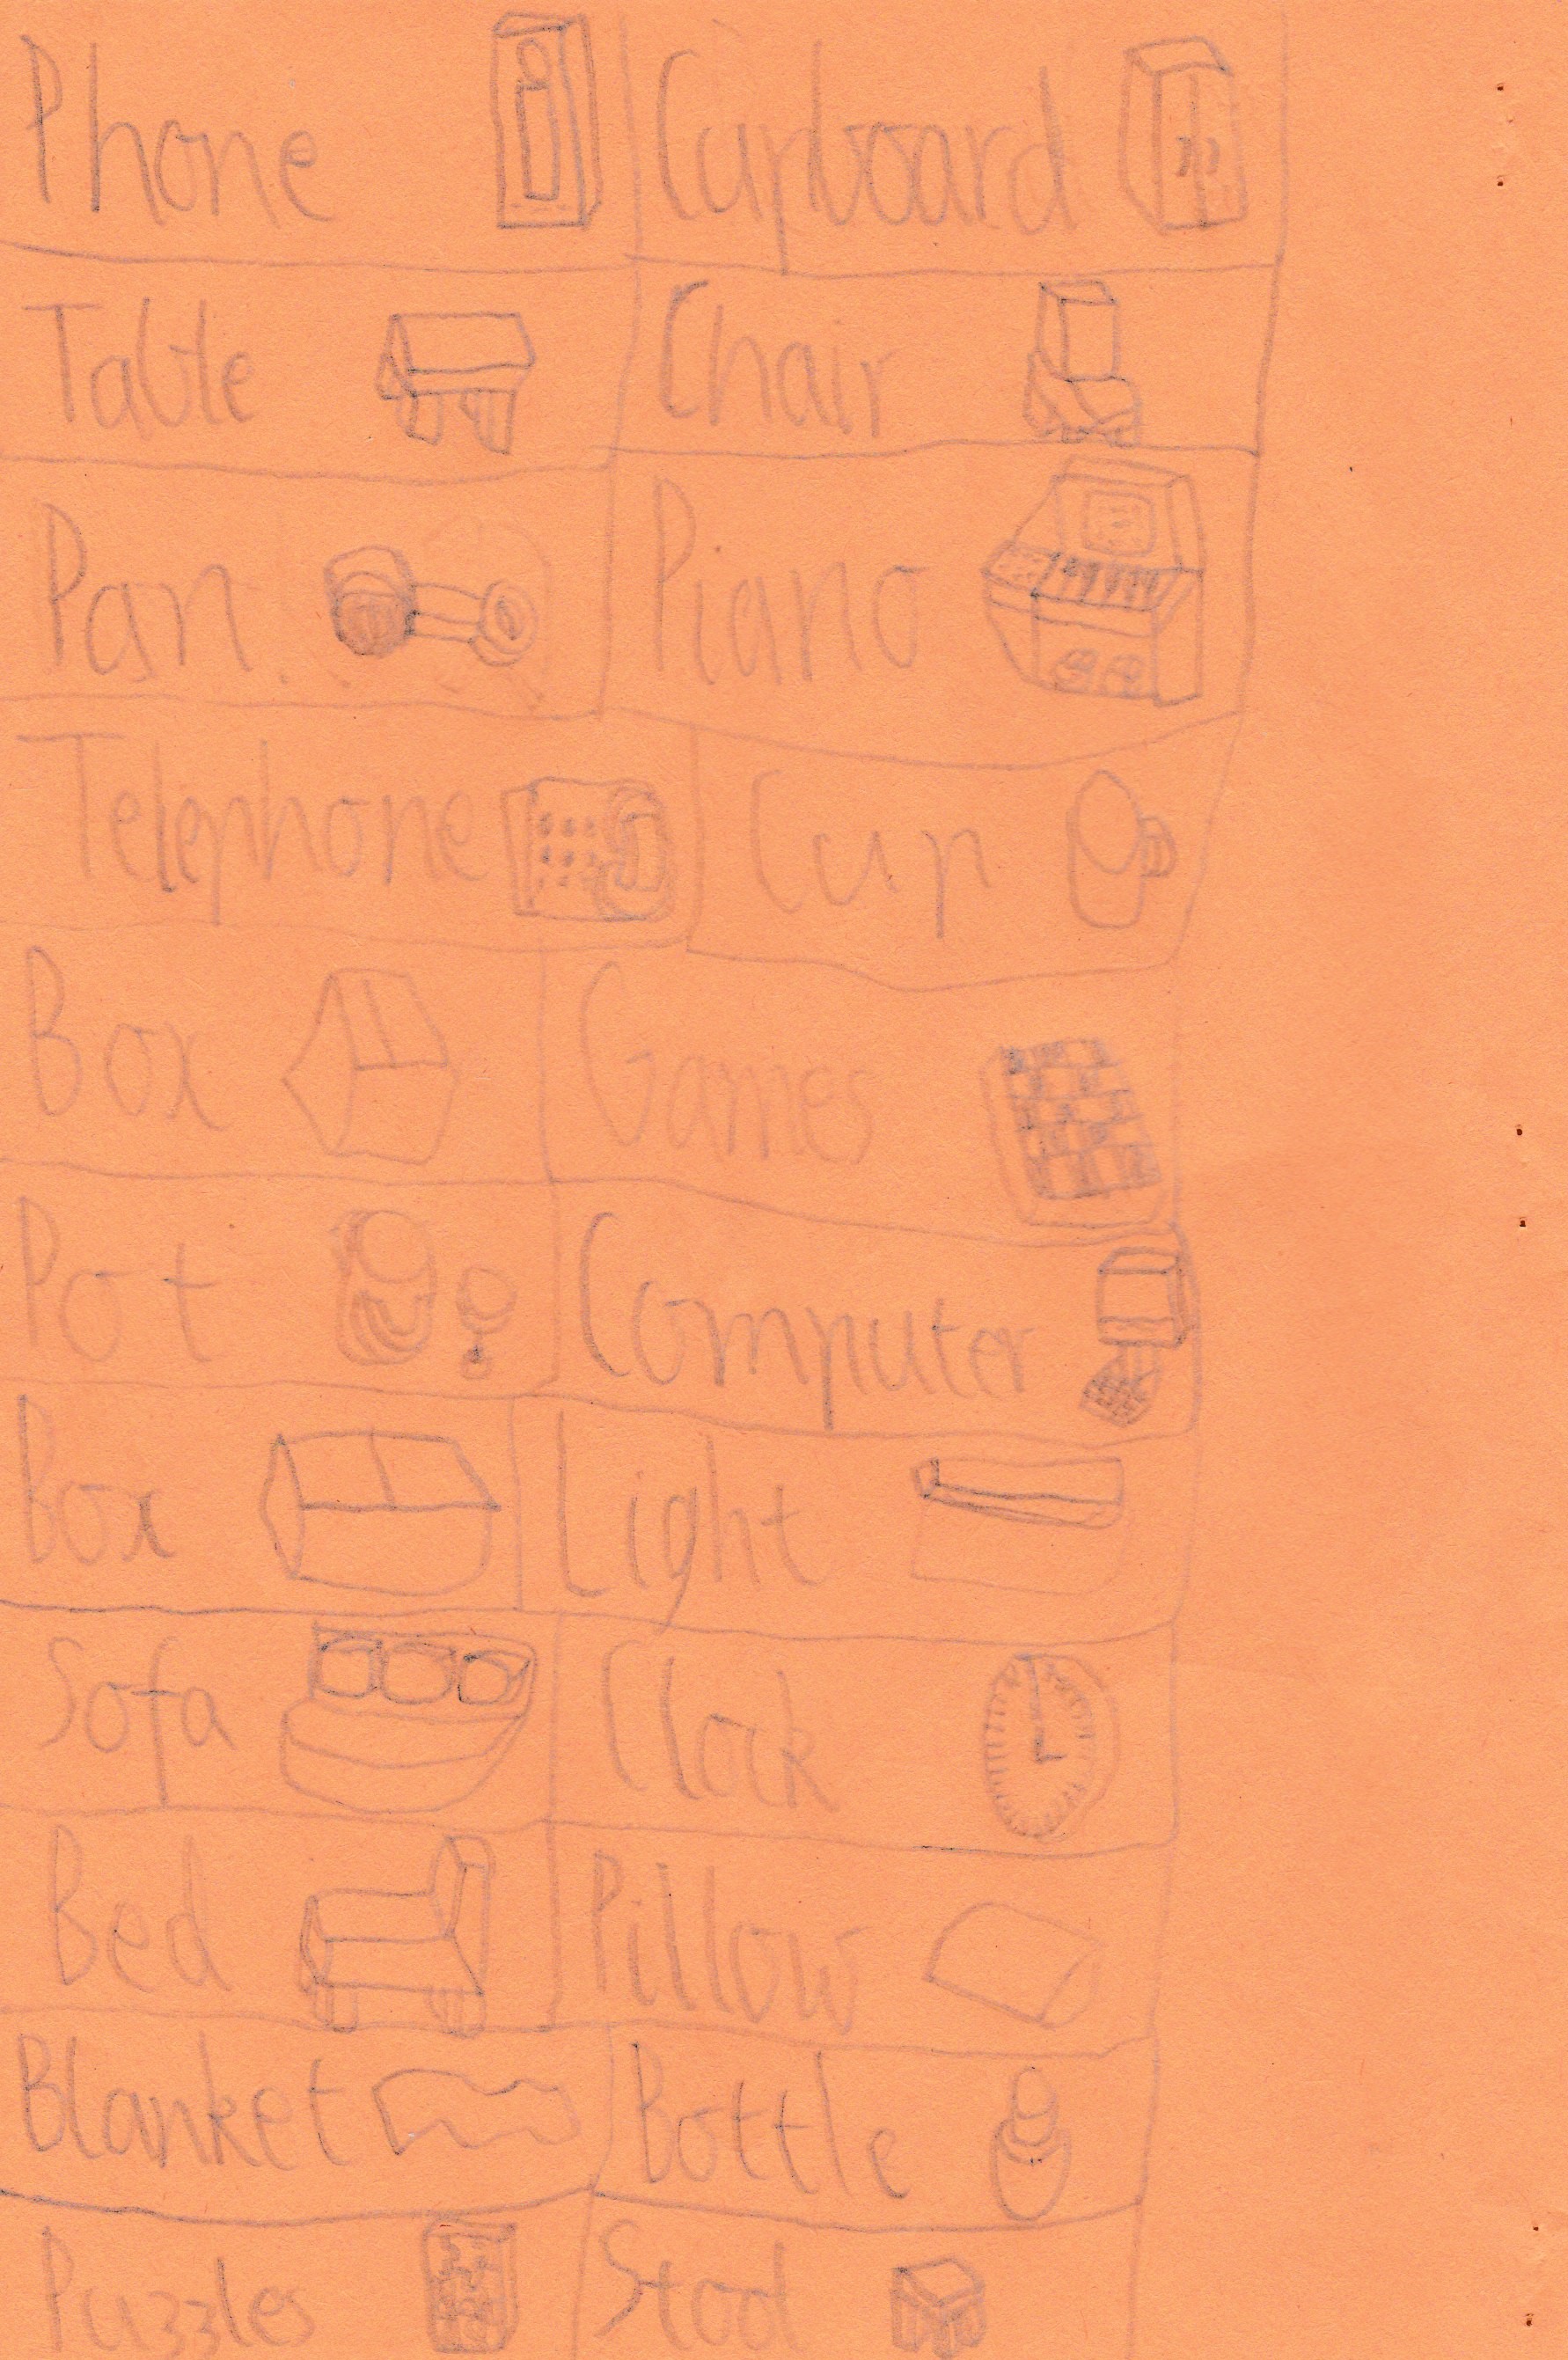 Phone Cupboard
Table Chair
Pan Piano
Telephone Cup
Box Games
Pot Computer
Box Light
Sofa Clock
Bed Pillow
Blanket Bottle
Puzzles Stool